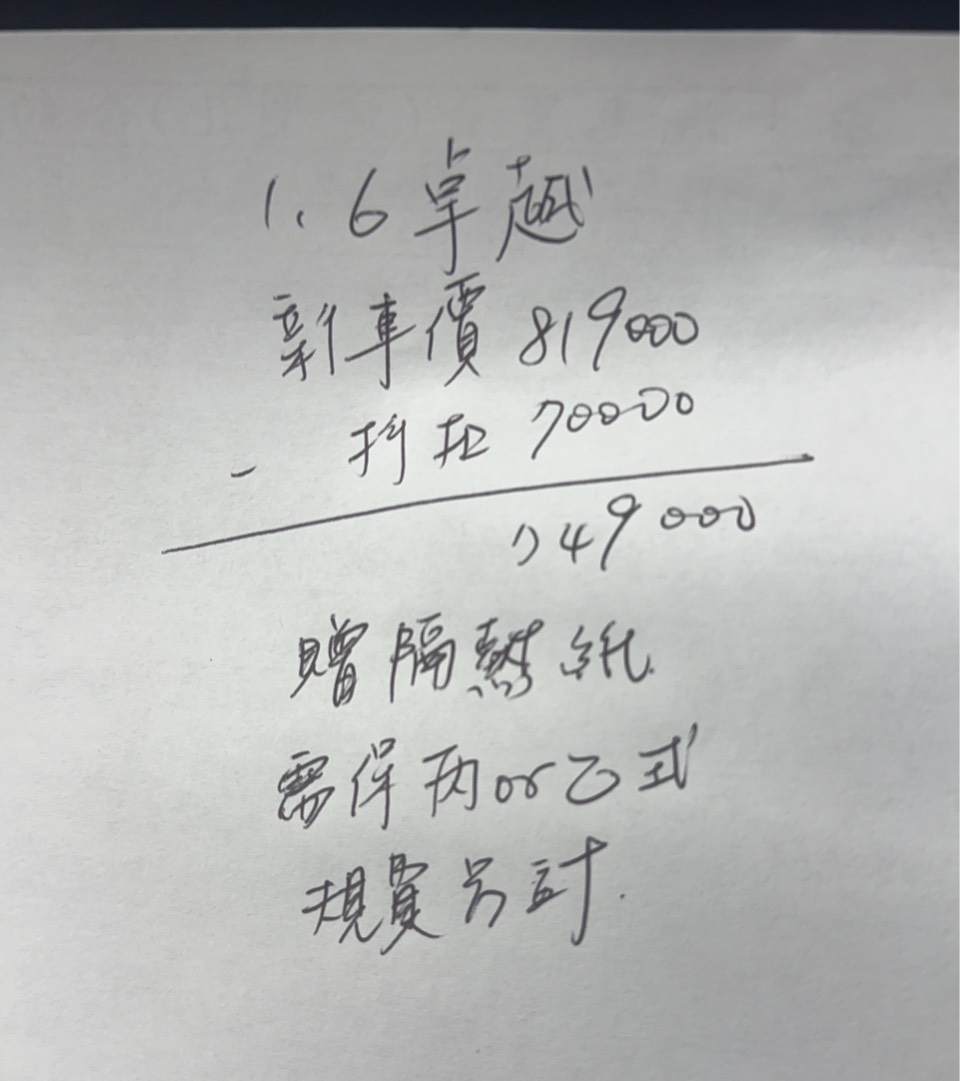 1.6卓越
新車價 819000
- 折扣 70000
749000
贈隔熱紙
需保丙or乙式
規費另計.